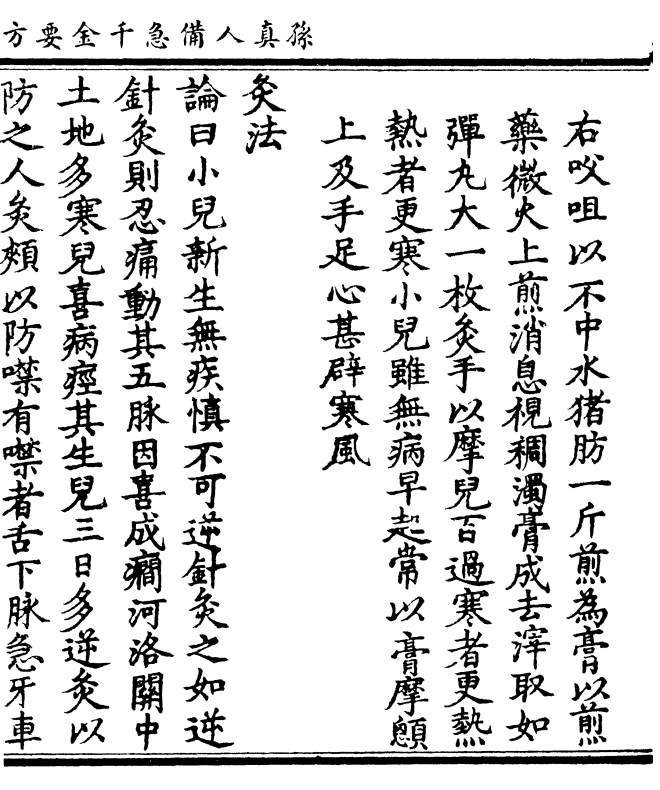 孫真人備急千金要方
右㕮咀以不中水猪肪一斤煎為膏以煎
藥微火上煎消息視稠濁膏成去滓取如
彈丸大一枚灸手以摩兒百過寒者更熱
熱者更寒小兒雖無病早起常以膏摩顖
上及手足心甚辟寒風
灸法
論曰小兒新生無疾慎不可逆針灸之如逆
針灸則忍痛動其五脉因喜成癇河洛關中
土地多寒兒喜病痙其生兒三日多逆灸以
防之人灸頰以防噤有噤者舌下脉急牙車